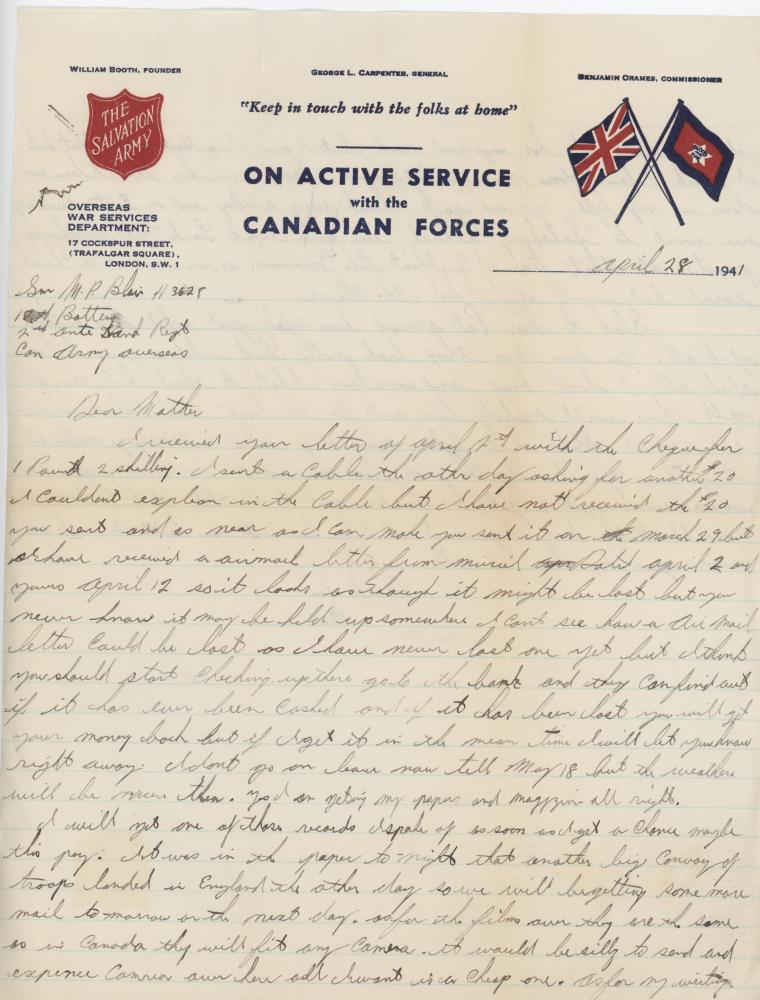 WILLIAM BOOTH, FOUNDER
GEORGE L. CARPENTER, GENERAL
BENJAMIN ORAMES, COMMISSIONER
THE
SALVATION
ARMY
"Keep in touch with the folks at home"
ON ACTIVE SERVICE
with the
CANADIAN FORCES
OVERSEAS
WAR SERVICES
DEPARTMENT:
17 COCKSPUR STREET,
(TRAFALGAR SQUARE),
LONDON, S.W. 1
April 28 1941
Gnr M.P. Blair H 3628
Battery
2nd anti Regt
Can Army overseas
Dear Mother
I received your letter of april 2nd with the Cheque for
1 Pound 2 shilling. I sent a Cable the other day asking for another $20
I Couldent explean in the Cable but I have not received the $20
you sent and as near as I can make you sent it on the march 29 but
I have received a airmail letter from muriel Dated april 2 and
yours april 12 so it looks as though it might be lost but you
never know it may be held up somewhere I Cant see how a Air Mail
letter Could be lost as I have never lost one yet but I think
you should start Checking up there go to the bank and they Can find out
if it has ever been Cashed and if it has been lost you will get
your money back but if I get it in the mean time I will let you know
right away. I dont go on leave now till May 18 but the weather
will be then. I geting my papers and magzzin all right.
I will get one of those records I spoke of as soon as I get a Chance maybe
this pay. It was in the paper to night that another big Convoy of
troops landed in England the other day so we will be getting some more
mail tomorrow or the next day. as for the films over they are the same
as in Canada they will fit any Camera. it would be silly to send and
expence Camera over here all I want is a Cheap one. as for my writing